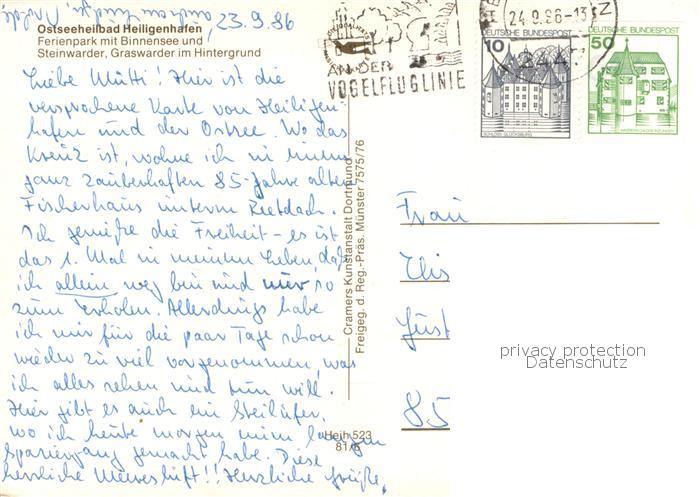 23.9.86
Ostseeheilbad Heiligenhafen
Ferienpark mit Binnensee und
Steinwarder, Graswarder im Hintergrund
Liebe Mutti! Hier ist die
versprochene Karte von Heiligen-
hafen und der Ostsee. Wo das
Kreuz ist, wohne ich in einem
ganz zauberhaften 85-Jahre alten
Fischerhaus unterm Reetdach.
Ich genieße die Freiheit – es ist
das 1. Mal in meinem Leben, daß
ich allein weg bin und nur so
zum Erholen. Allerdings habe
ich mir für die paar Tage schon
wieder zu viel vorgenommen, was
ich alles sehen und tun will.
Hier gibt es auch ein Steilufer,
wo ich heute morgen einen langen
Spaziergang gemacht habe. Diese
herrliche Meeresluft!! Herzliche Grüße,
Cramers Kunstanstalt Dortmund
Freigeg. d. Reg.-Präs. Münster 7575/76
Heih 523
81/6
AN DER
VOGELFLUGLINIE
24.9.86-13
Z
2447
10 DEUTSCHE BUNDESPOST
SCHLOSS GLÜCKSBURG
50 DEUTSCHE BUNDESPOST
WASSERSCHLOSS INZLINGEN
Frau
Elis
Fürst
85
privacy protection
Datenschutz